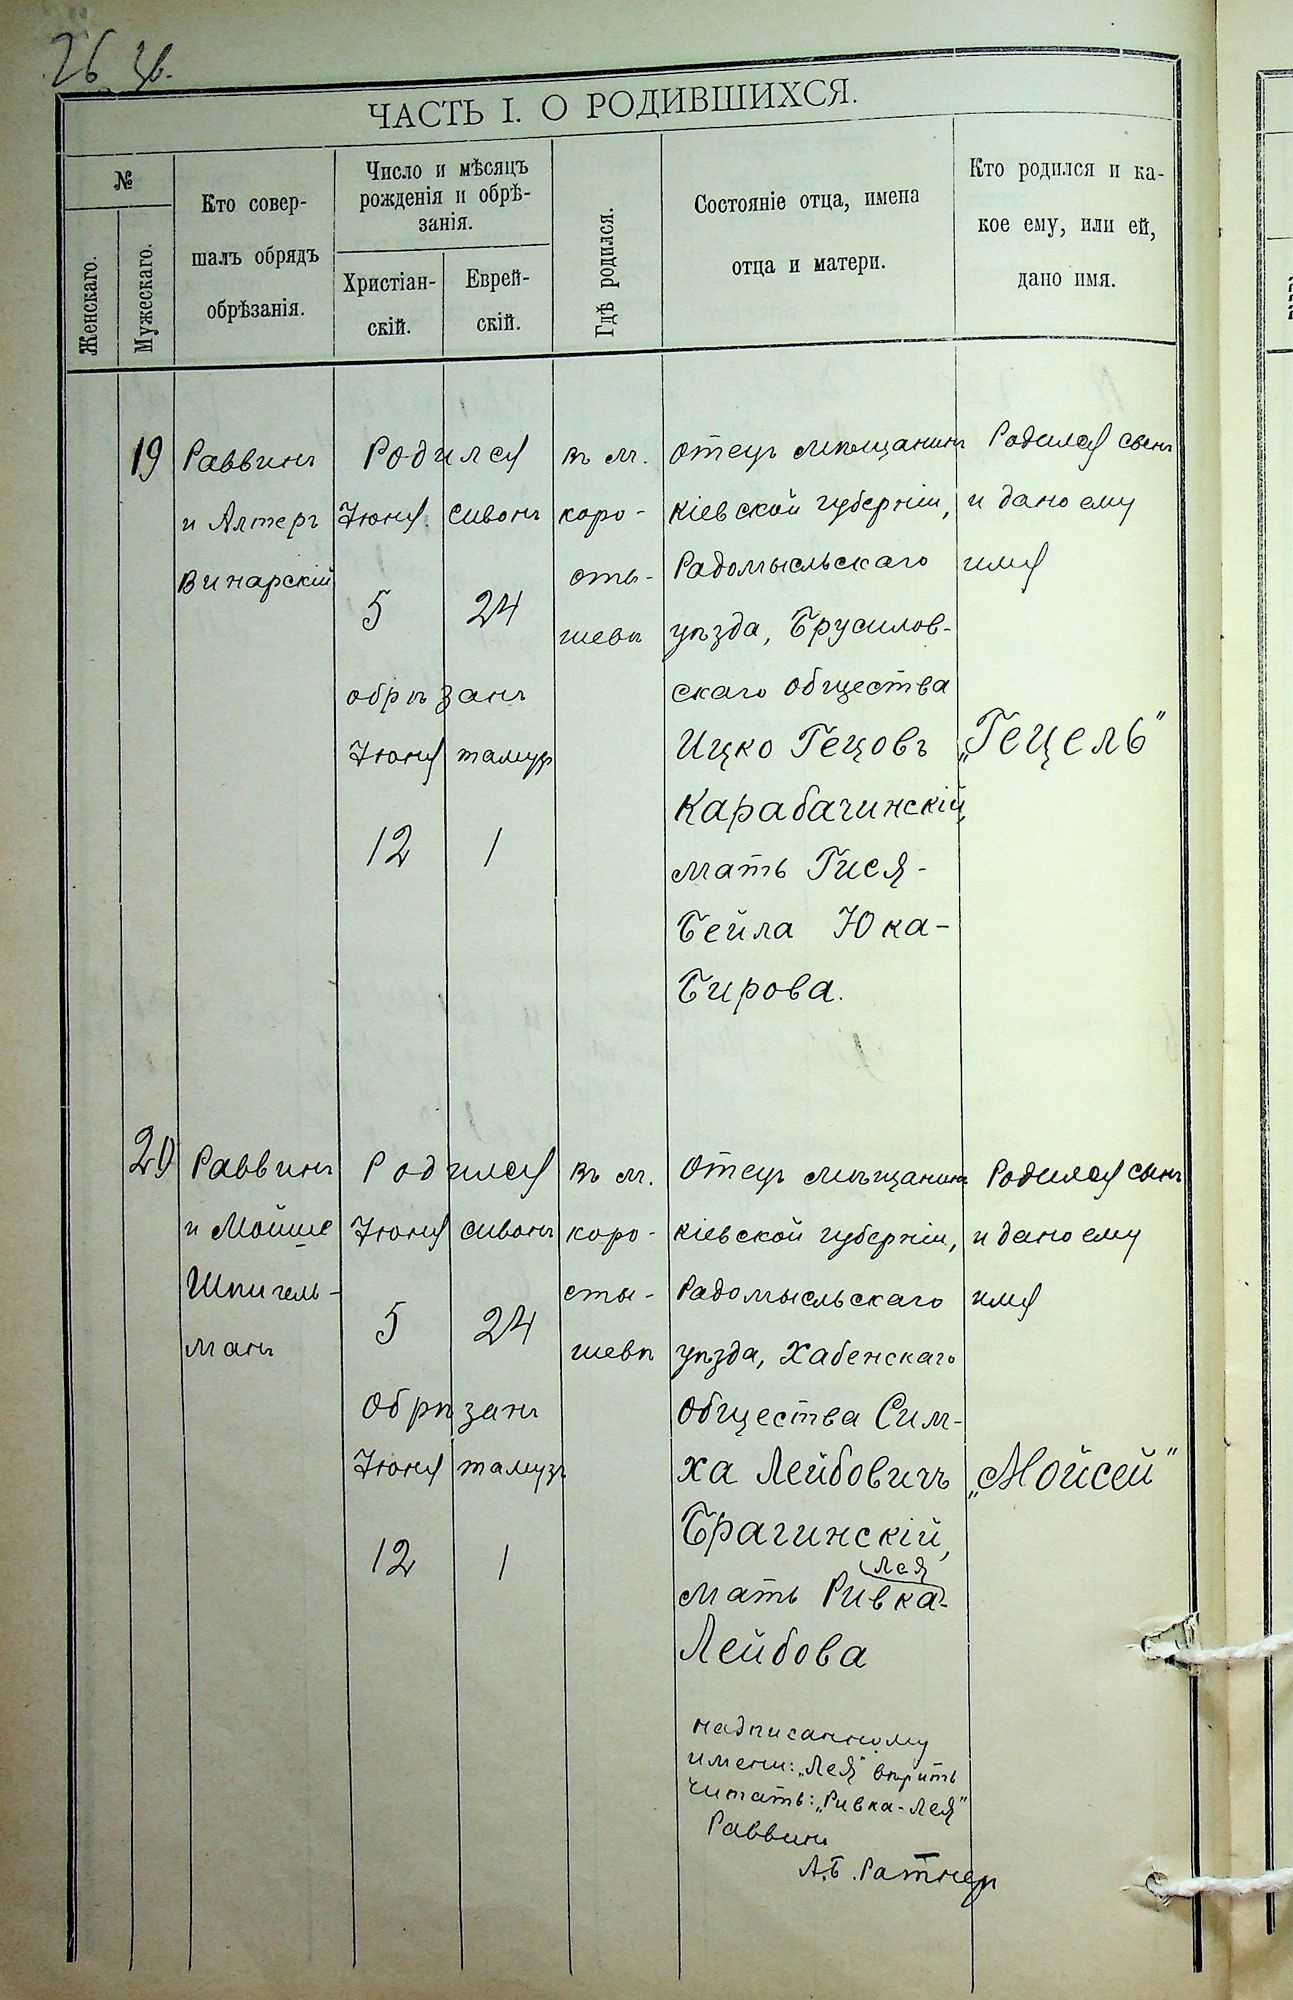 26 зв.
ЧАСТЬ I. О РОДИВШИХСЯ.
№
Женскаго.
Мужескаго.
Кто совер-
шалъ обрядъ
обрѣзанія.
Число и мѣсяцъ
рожденія и обрѣ-
занія.
Христіан-
скій.
Еврей-
скій.
Гдѣ родился.
Состояніе отца, имена
отца и матери.
Кто родился и ка-
кое ему, или ей,
дано имя.
19
Раввинъ
и Алтеръ
Винарскій
Родился
Іюня Сивонъ
5 24
обрѣзанъ
Іюня тамузъ
12 1
въ м.
коро-
сты-
шевѣ
Отецъ мѣщанинъ
Кіевской губерніи,
Радомысльскаго
уѣзда, Брусилов-
скаго общества
Ицко Гецовъ
Карабачинскій,
мать Гися-
Бейла Юка-
Бирова.
Родился сынъ
и дано ему
имя
„Гецель"
20
Раввинъ
и Мойше
Шпигель-
манъ
Родился
Іюня сивонъ
5 24
Обрѣзанъ
Іюня тамузъ
12 1
Въ м.
коро-
сты-
шевѣ
Отецъ мѣщанинъ
Кіевской губерніи,
Радомысльскаго
уѣзда, Хабенскаго
Общества Сим-
ха Лейбовичъ
Брагинскій,
Лея
мать Ривка-
Лейбова
надписанному
имени: „Лея" вѣрить
читать: „Ривка-Лея"
Раввинъ
А.Б. Ратнеръ
Родился сынъ
и дано ему
имя
„Мойсей"